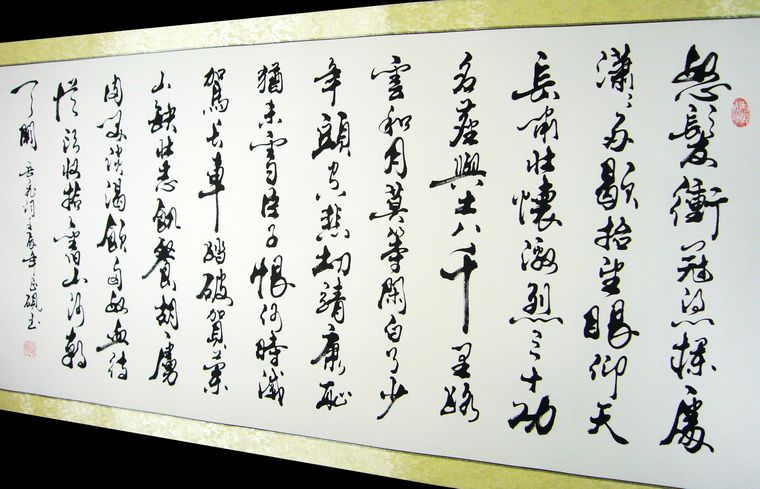 怒髮衝冠憑欄處
瀟瀟雨歇抬望眼仰天
長嘯壯懷激烈三十功
名塵與土八千里路
雲和月莫等閑白了少
年頭空悲切靖康恥
猶未雪臣子恨何時滅
駕長車踏破賀蘭
山缺壯志飢餐胡虜
肉笑談渴飲匈奴血待
從頭收拾舊山河朝
天闕 岳飛詞 壬辰年